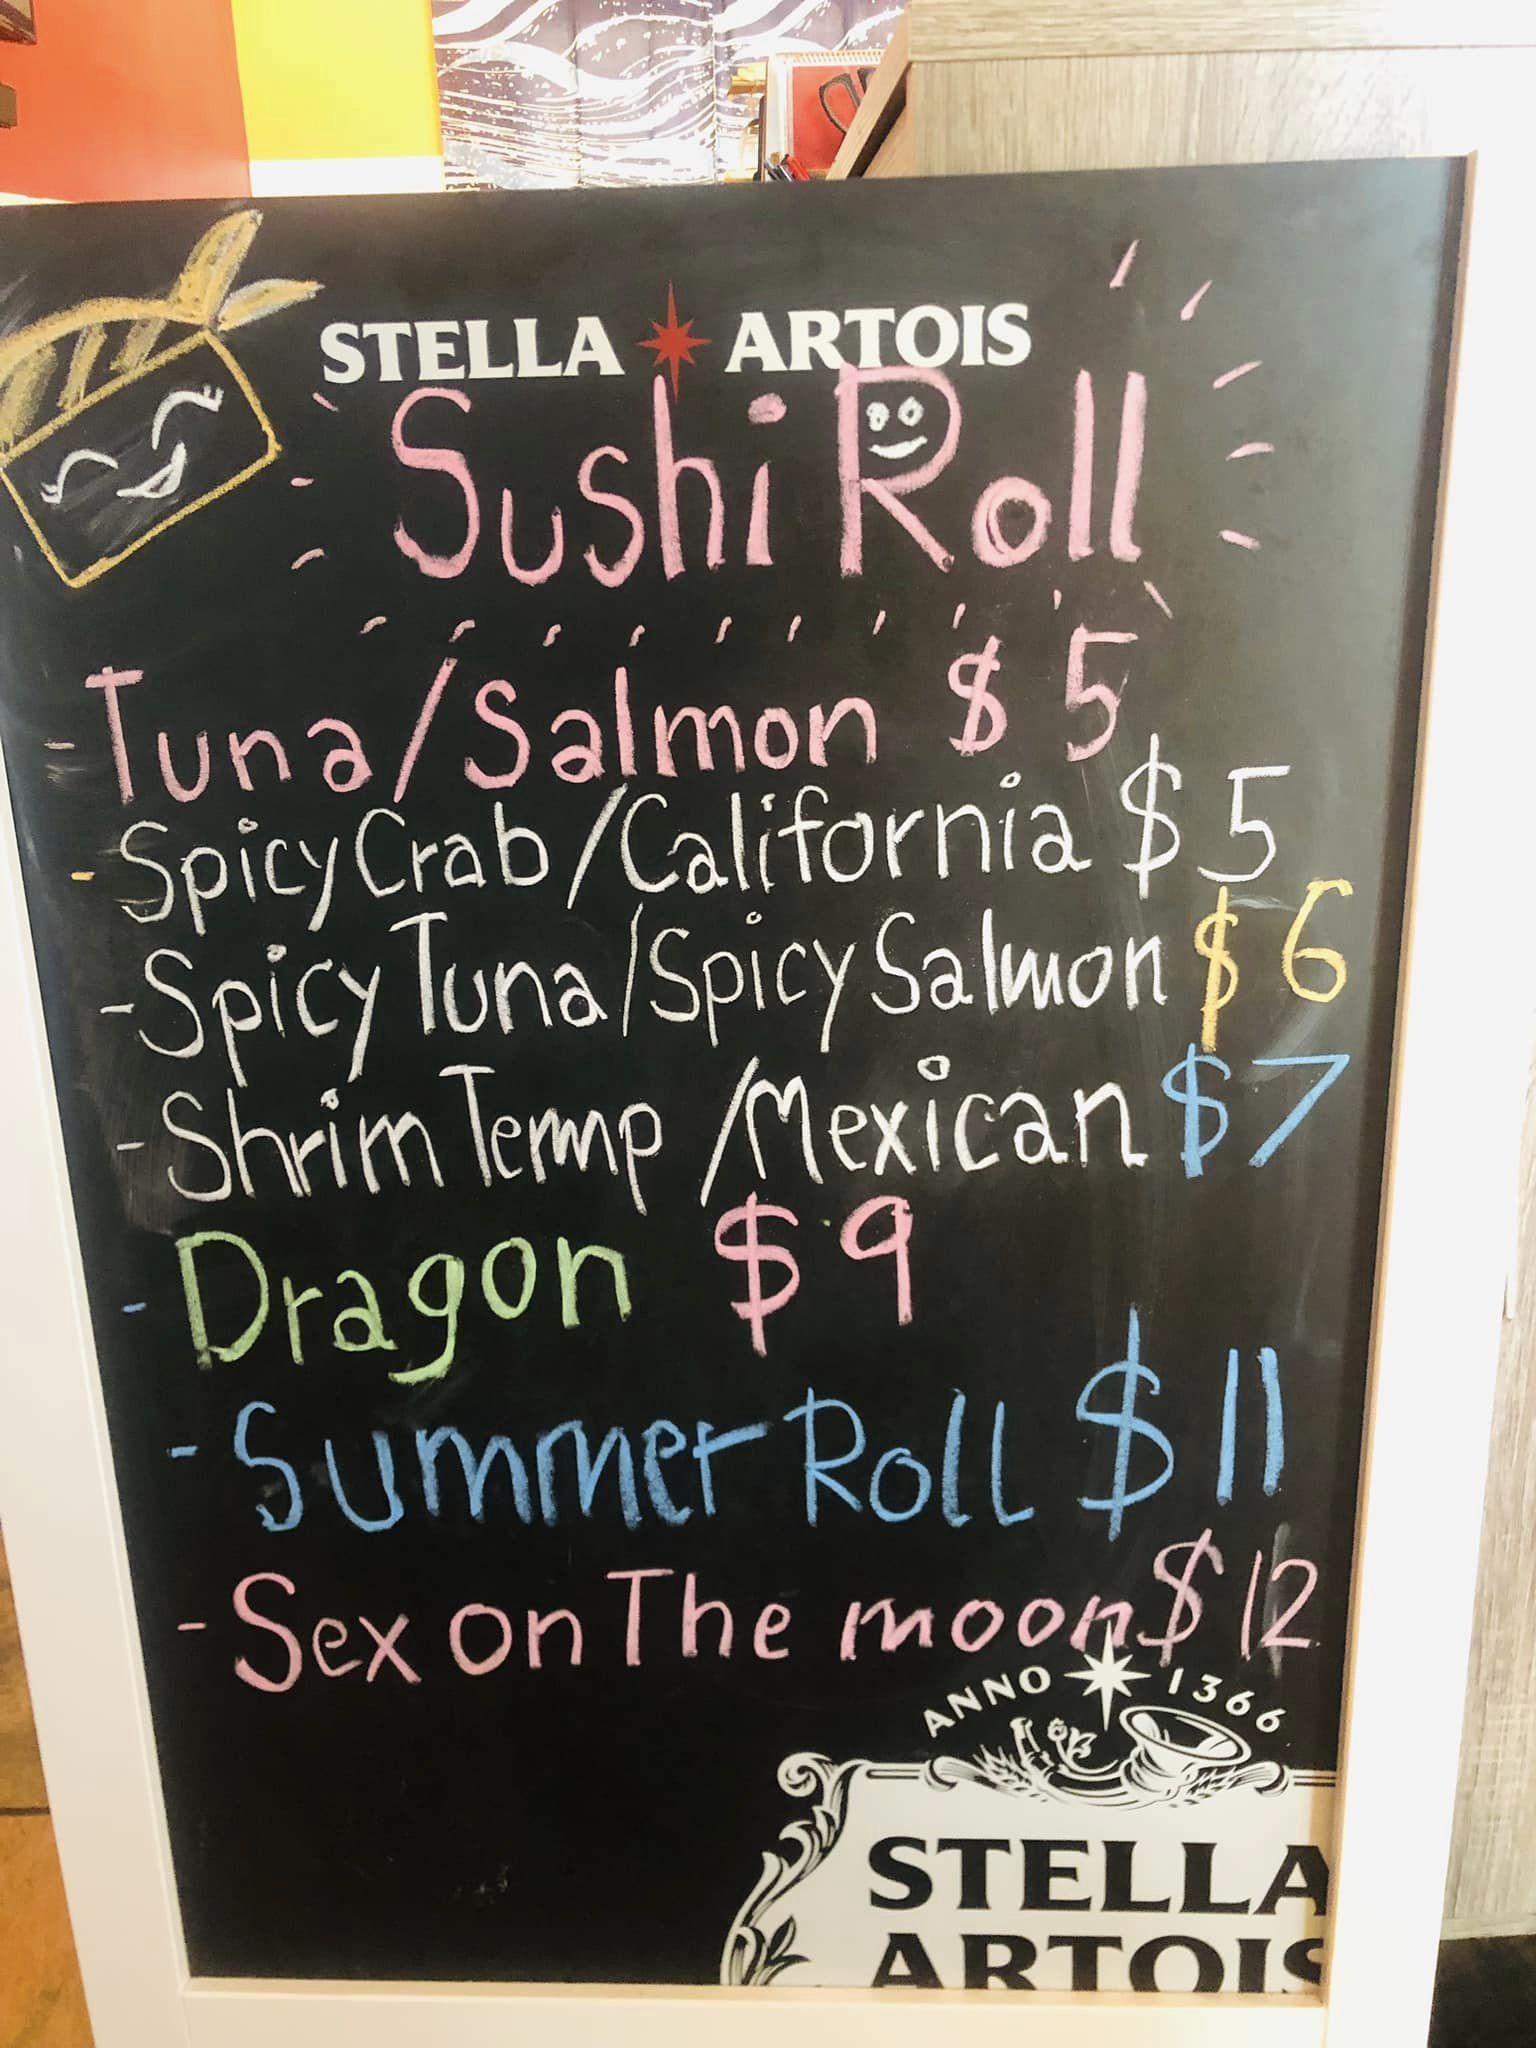 STELLA ARTOIS
Sushi Roll
- Tuna/Salmon $5
- Spicy Crab/California $5
- Spicy Tuna/Spicy Salmon $6
- Shrim Temp/Mexican $7
- Dragon $9
- Summer Roll $11
- Sex on The moon $12
ANNO 1366
STELLA
ARTOIS